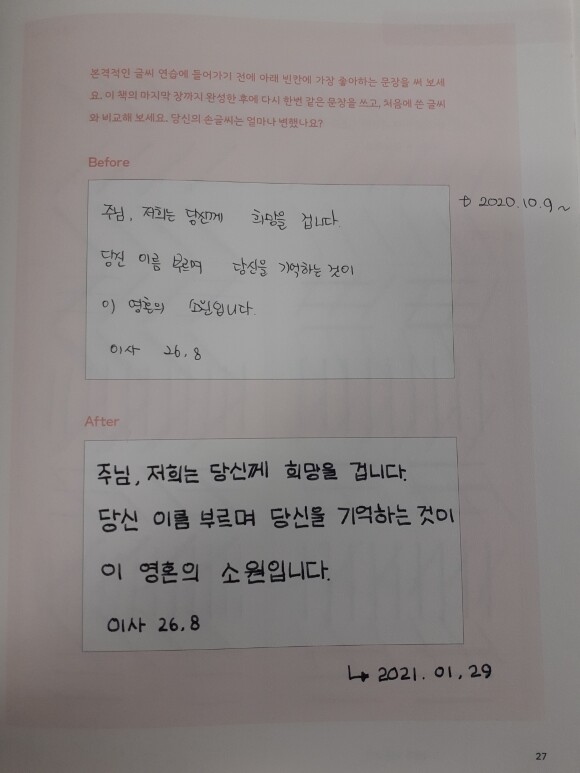 본격적인 글씨 연습에 들어가기 전에 아래 빈칸에 가장 좋아하는 문장을 써 보세
요. 이 책의 마지막 장까지 완성한 후에 다시 한번 같은 문장을 쓰고, 처음에 쓴 글씨
와 비교해 보세요. 당신의 손글씨는 얼마나 변했나요?
Before
주님, 저희는 당신께 희망을 겁니다.
당신 이름 부르며 당신을 기억하는 것이
이 영혼의 소원입니다.
이사 26.8
→ 2020.10.9~
After
주님, 저희는 당신께 희망을 겁니다.
당신 이름 부르며 당신을 기억하는 것이
이 영혼의 소원입니다.
이사 26.8
↳ 2021.01.29
27